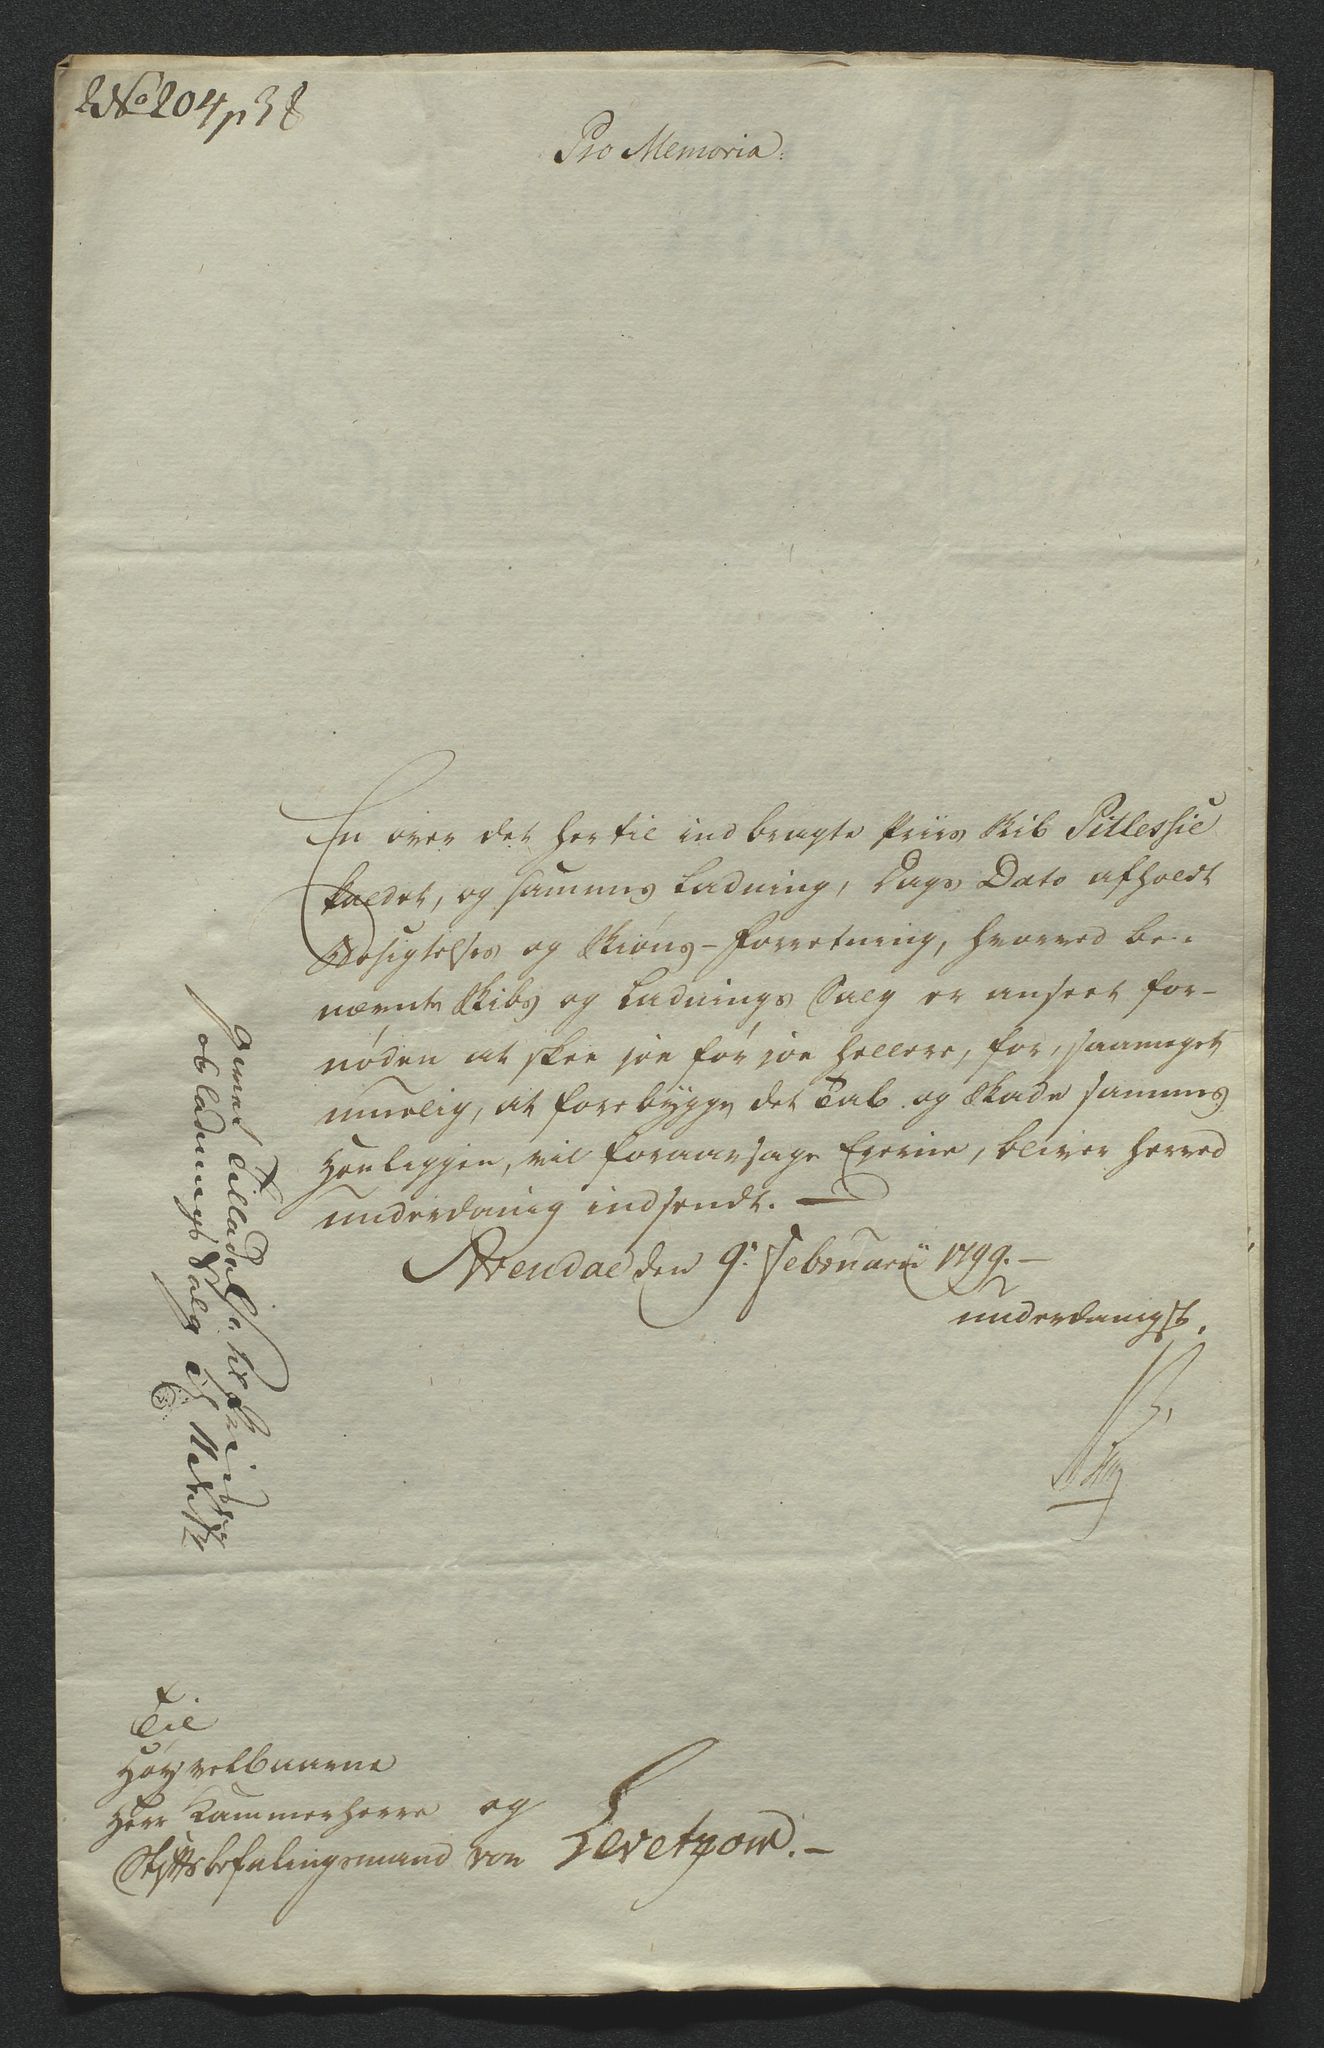 No 204 p 38
Pro Memoria.
En over det hertil indbragte Priis Skib Pitlessie
kaldet, og sammes Ladning, Dags Dato afholdt
Besigtelses og Skiøns-Forretning, hvorved be-
nævnte Skibs og Ladnings Salg er anseet for-
nøden at skee joe før joe hellere, for, saameget
muelig, at forebygge det Tab og Skade sammes
Henliggen, vil foraarsage Eierne, bliver herved
underdanig indsendt. —
Arendal den 9de Februarii 1799. —
underdanigst.
Skib
og Ladnings Salg
Til
Høyvelbaarne
Herr Kammerherre og
Stiftsbefalingsmand von Levetzow. —